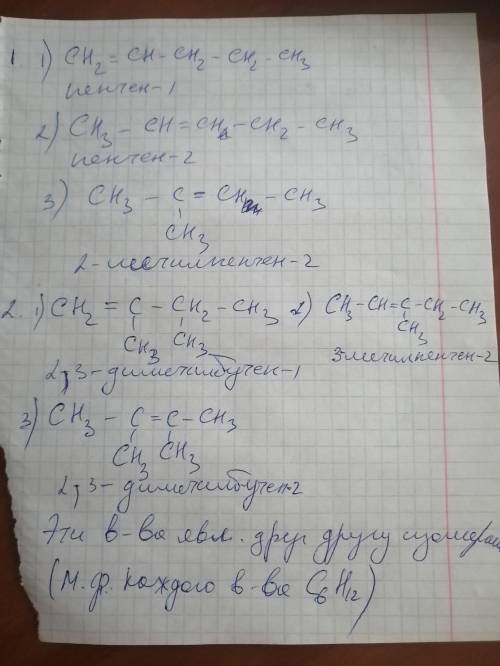 1. 1) CH₂ = CH - CH₂ - CH₂ - CH₃
пентен-1
2) CH₃ - CH = CH - CH₂ - CH₃
пентен-2
3) CH₃ - C = CH - CH₃
CH₃
2-метилпентен-2
2. 1) CH₂ = C - CH₂ - CH₃ 2) CH₃-CH=C-CH₂-CH₃
CH₃ CH₃ CH₃
2,3-диметилбутен-1 3-метилпентен-2
3) CH₃ - C = C - CH₃
CH₃ CH₃
2,3-диметилбутен-2
Эти в-ва явл. друг другу изомерами
(М.ф. каждого в-ва C₆H₁₂)